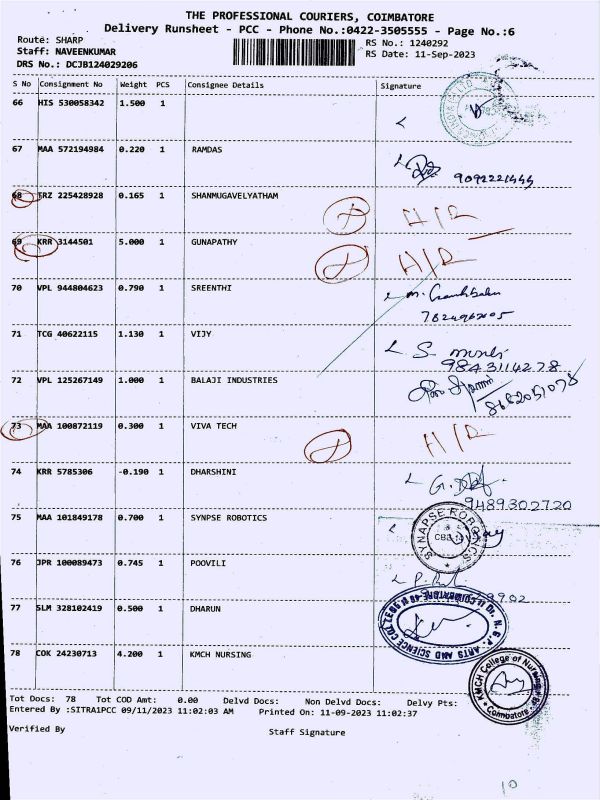 THE PROFESSIONAL COURIERS, COIMBATORE
Delivery Runsheet - PCC - Phone No.:0422-3505555 - Page No.:6
Route: SHARP RS No.: 1240292
Staff: NAVEENKUMAR RS Date: 11-Sep-2023
DRS No.: DCJB124029206
S No Consignment No Weight PCS Consignee Details Signature
66 HIS 530058342 1.500 1
67 MAA 572194984 0.220 1 RAMDAS
9092221444
68 TRZ 225428928 0.165 1 SHANMUGAVELYATHAM H/R
69 KRR 3144501 5.000 1 GUNAPATHY H/R
70 VPL 944804623 0.790 1 SREENTHI
71 TCG 40622115 1.130 1 VIJY
9843114278
72 VPL 125267149 1.000 1 BALAJI INDUSTRIES
8682051078
73 MAA 100872119 0.300 1 VIVA TECH H/R
74 KRR 5785306 -0.190 1 DHARSHINI
9489302720
75 MAA 101849178 0.700 1 SYNPSE ROBOTICS
SYNAPSE ROBOTICS
76 JPR 100089473 0.745 1 POOVILI
77 SLM 328102419 0.500 1 DHARUN
Dr. N. G. P. ARTS AND SCIENCE COLLEGE
78 COK 24230713 4.200 1 KMCH NURSING
KMCH College of Nursing
Coimbatore
Tot Docs: 78 Tot COD Amt: 0.00 Delvd Docs: Non Delvd Docs: Delvy Pts:
Entered By :SITRA1PCC 09/11/2023 11:02:03 AM Printed On: 11-09-2023 11:02:37
Verified By Staff Signature
10